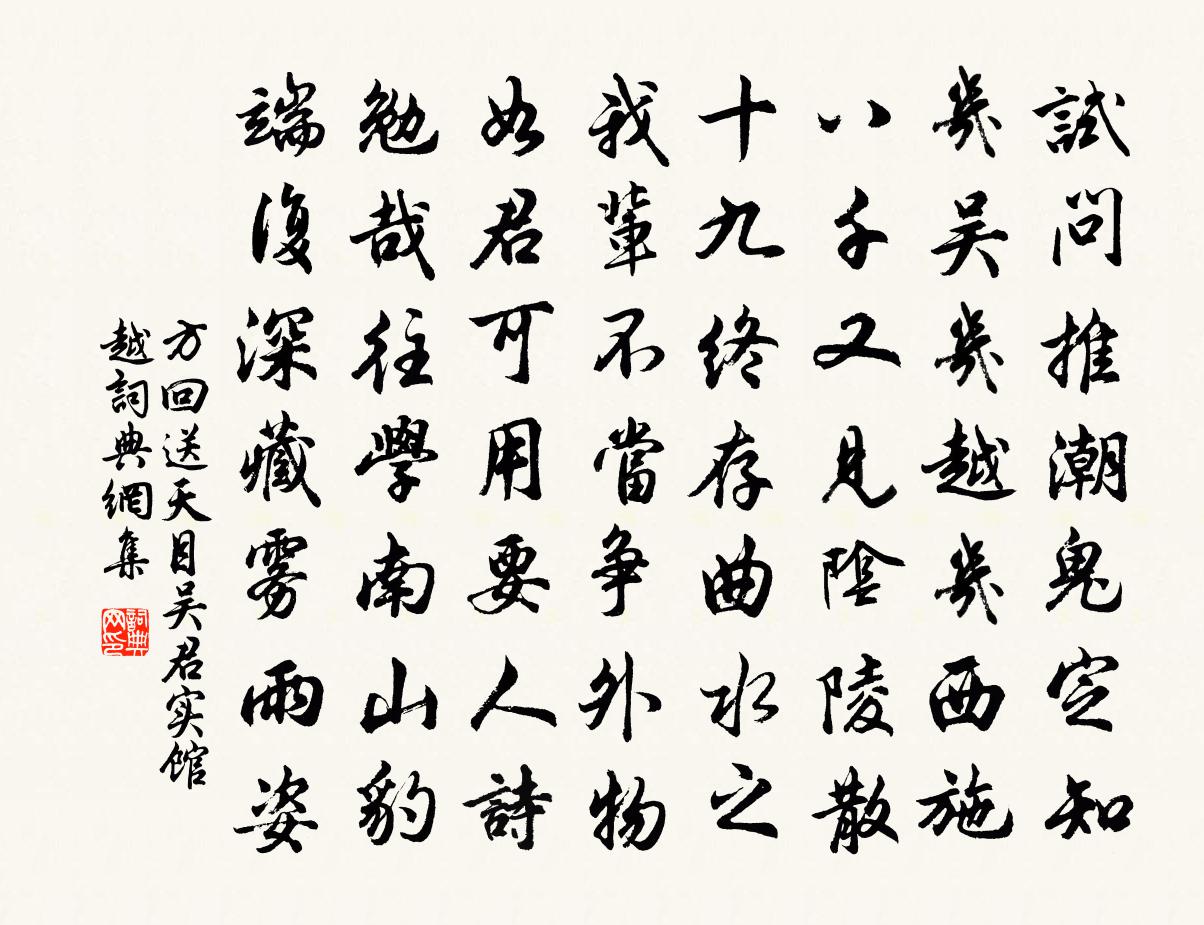 試問推潮鬼定知
幾吴幾越幾西施
八千又見陰陵散
十九终存曲水之
我輩不當争外物
如君可用要人詩
勉哉往學南山豹
端復深藏雾雨姿
方回送天目吴君实馆
越詞典網集
詞典网印